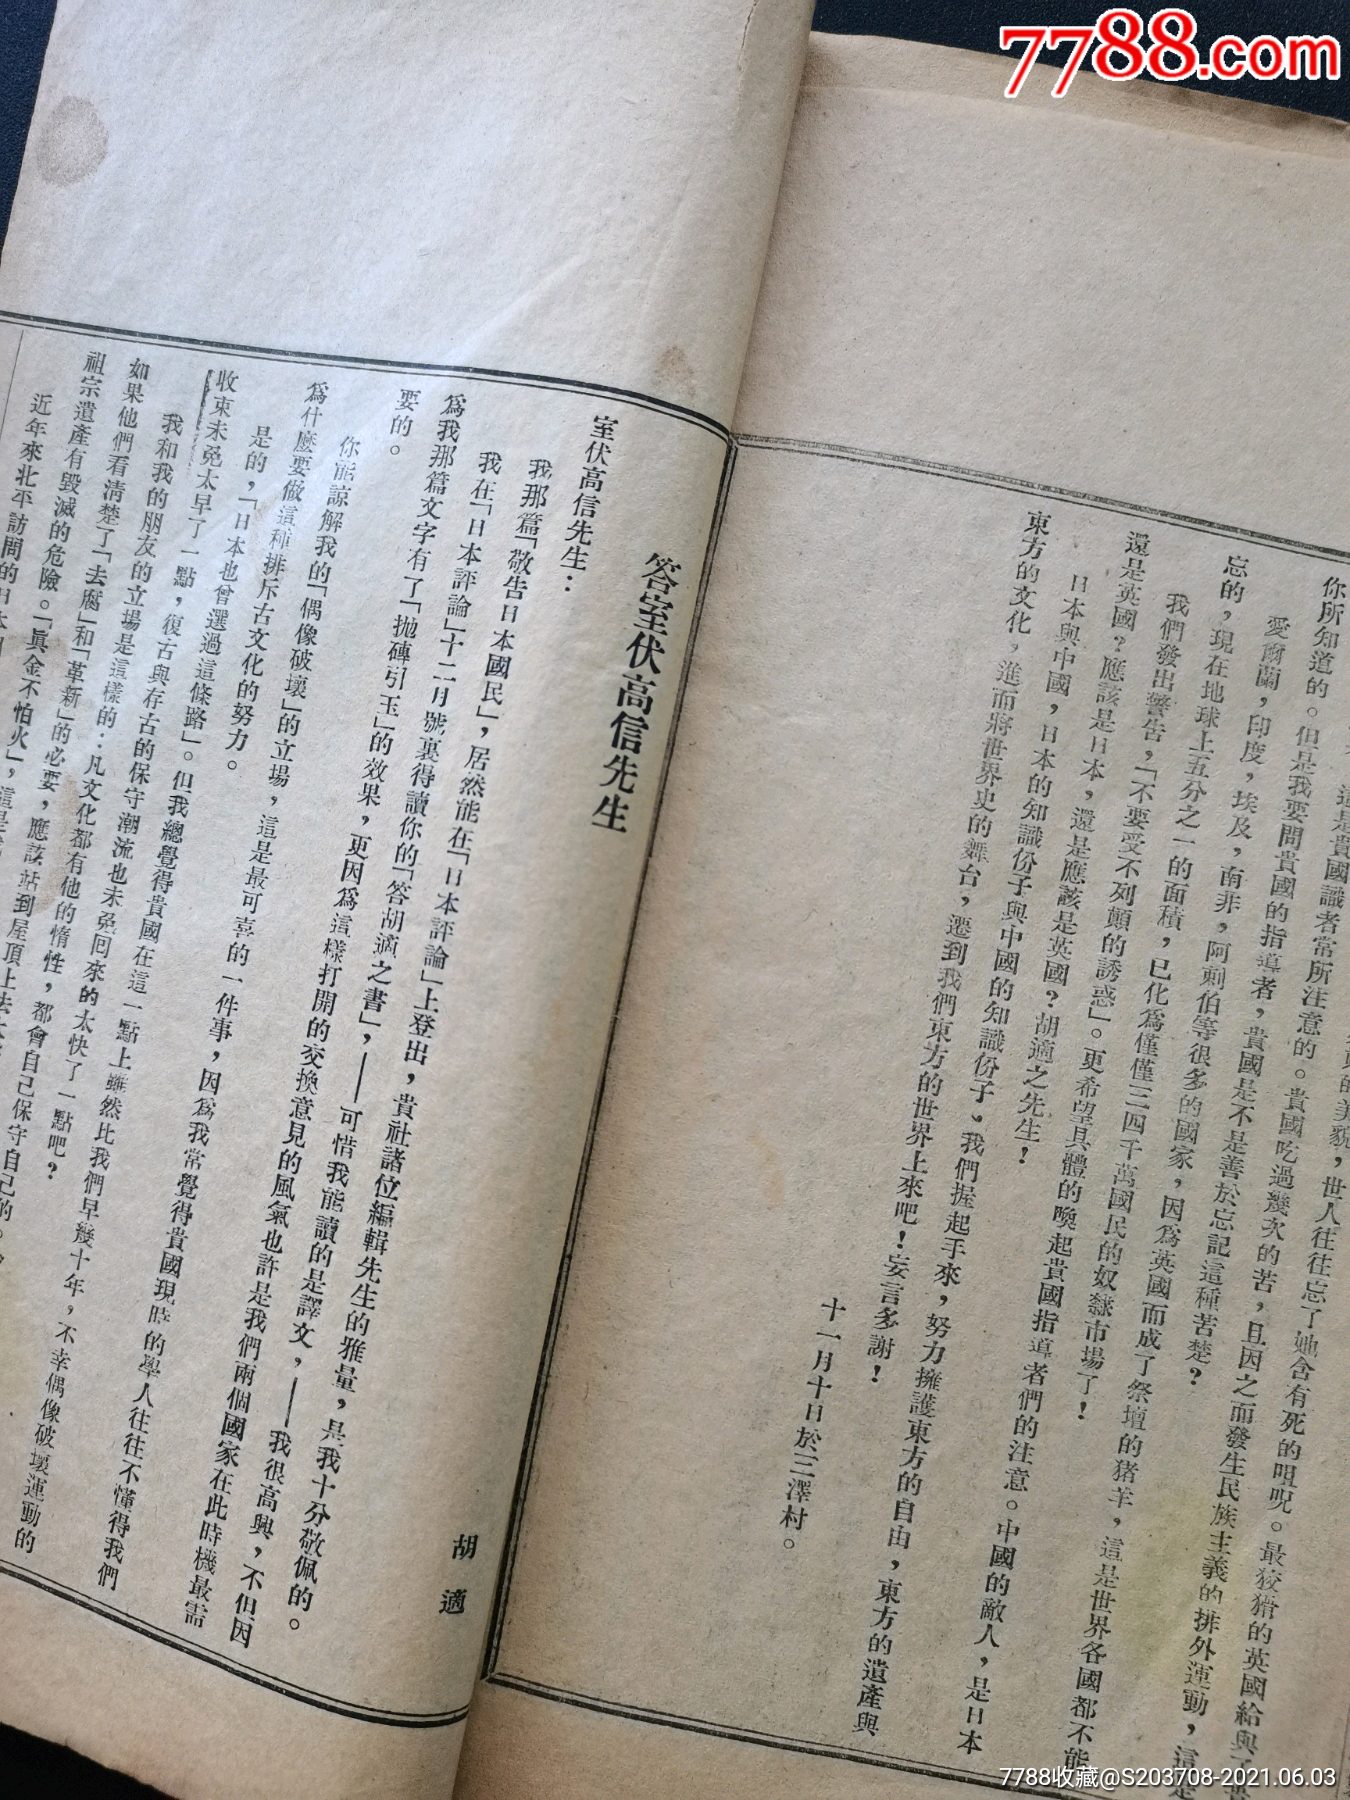 7788.com
你所知道的。但是我要問貴國的指導者，貴國是不是善於忘記這種苦楚？
愛爾蘭，印度，埃及，南非，阿剌伯等很多的國家，因為英國而成了祭壇的猪羊，這是世界各國都不能
忘的，現在地球上五分之一的面積，已化為僅僅三四千萬國民的奴隸市場了！
我們發出警告，「不要受不列顛的誘惑」。更希望具體的喚起貴國指導者們的注意。中國的敵人，是日本
還是英國？應該是日本，還是應該是英國？胡適之先生！
日本與中國，日本的知識份子與中國的知識份子。我們握起手來，努力擁護東方的自由，東方的遺產與
東方的文化，進而將世界史的舞台，遷到我們東方的世界上來吧！妄言多謝！
十一月十日於三澤村。
答室伏高信先生
胡適
室伏高信先生：
我那篇「敬告日本國民」，居然能在「日本評論」上登出，貴社諸位編輯先生的雅量，是我十分敬佩的。
我在「日本評論」十二月號裏得讀你的「答胡適之書」，——可惜我能讀的是譯文，——我很高興，不但因
為我那篇文字有了「抛磚引玉」的效果，更因為這樣打開的交換意見的風氣也許是我們兩個國家在此時機最需
要的。
你能諒解我的「偶像破壞」的立場，這是最可喜的一件事，因為我常覺得貴國現時的學人往往不懂得我們
為什麼要做這種排斥古文化的努力。
是的，「日本也曾選過這條路」。但我總覺得貴國在這一點上雖然比我們早幾十年，不幸偶像破壞運動的
收束未免太早了一點，復古與存古的保守潮流也未免回來的太快了一點吧？
我和我的朋友的立場是這樣的：凡文化都有他的惰性，都會自己保守自己的。
如果他們看清楚了「去腐」和「革新」的必要，應該站到屋頂上去
祖宗遺產有毀滅的危險。「眞金不怕火」，這是
近年來北平訪問的日本
7788收藏@S203708-2021.06.03